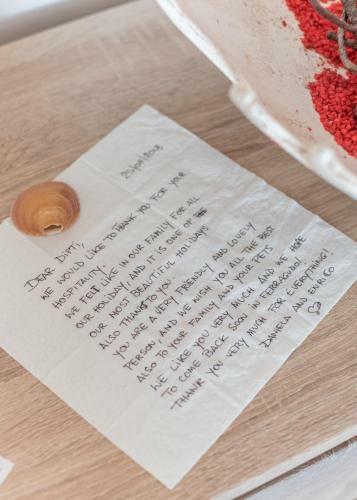 25/09/2018
DEAR DIPTI,
WE WOULD LIKE TO THANK YOU FOR YOUR
HOSPITALITY.
WE FELT LIKE IN OUR FAMILY FOR ALL
OUR HOLIDAY, AND IT IS ONE OF
OUR MOST BEAUTIFUL HOLIDAYS
ALSO THANK TO YOU.
YOU ARE A VERY FRIENDLY AND LOVELY
PERSON, AND WE WISH YOU ALL THE BEST
ALSO TO YOUR FAMILY AND YOUR PETS
WE LIKE YOU VERY MUCH AND WE HOPE
TO COME BACK SOON IN FERRAGUDO!
THANK YOU VERY MUCH FOR EVERYTHING!
DANIELA AND ENRICO